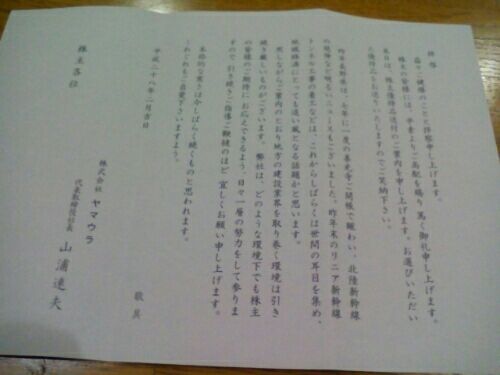 拝啓
益々ご健勝のことと拝察申し上げます。
株主の皆様には、平素よりご高配を賜り篤く御礼申し上げます。
本日は、株主優待品送付のご案内を申し上げます。お選びいただい
た優待品をお送りいたしますのでご笑納下さい。
昨年長野県は、七年に一度の善光寺ご開帳で賑わい、北陸新幹線
の延伸など明るいニュースもございました。昨年末のリニア新幹線
トンネル工事の着工などは、これからしばらくは世間の耳目を集め、
地域経済にとっても追い風となる話題かと思います。
然しながらご案内のとおり地方の建設業界を取り巻く環境は引き
続き厳しいものがございます。弊社は、どのような環境下でも株主
の皆様のご期待にお応えできるよう、日々一層の努力をして参りま
すので引き続きご指導ご鞭撻のほど宜しくお願い申し上げます。
本格的な寒さは今しばらく続くものと思われます。
くれぐれもご自愛下さいますよう。
敬具
平成二十八年二月吉日
株式会社 ヤマウラ
代表取締役社長 山浦速夫
株主各位